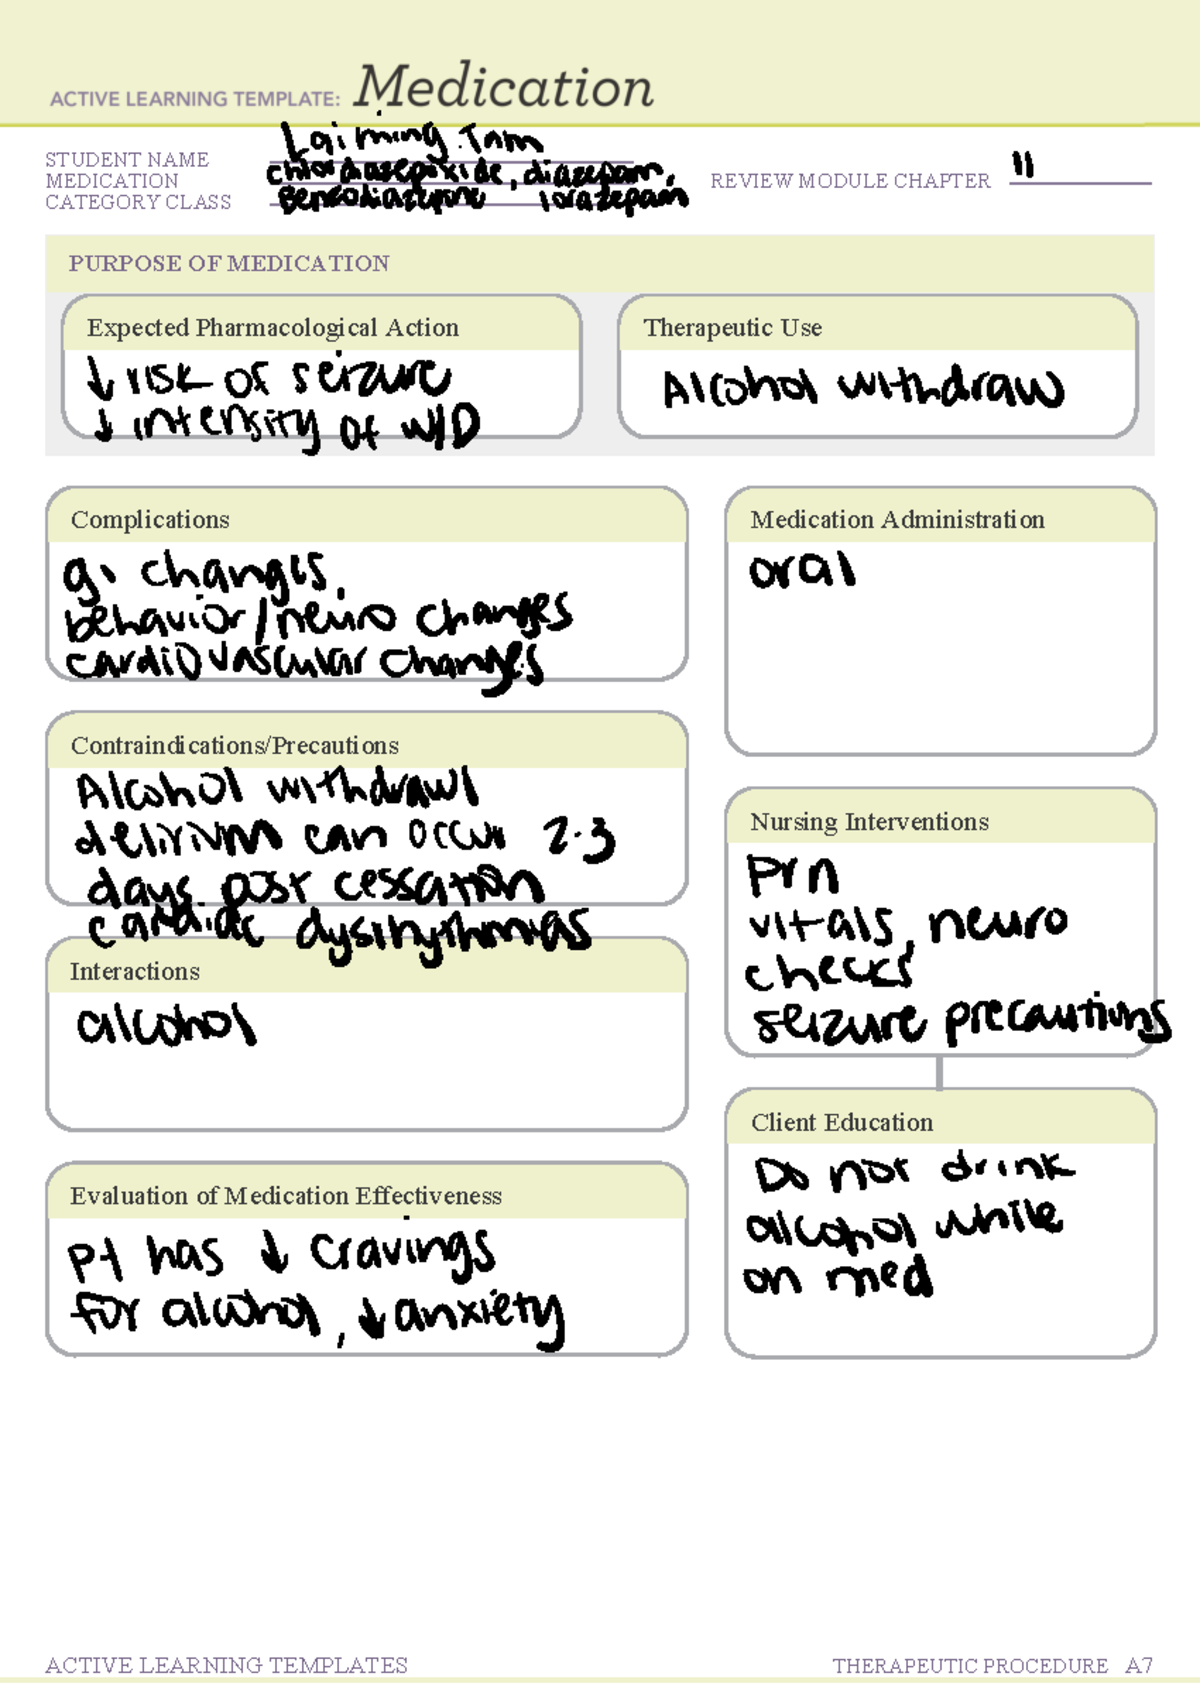 ACTIVE LEARNING TEMPLATE: Medication
STUDENT NAME Laiming Tam
MEDICATION chlordiazepoxide, diazepam,
CATEGORY CLASS Benzodiazepine lorazepam
REVIEW MODULE CHAPTER 11
PURPOSE OF MEDICATION
Expected Pharmacological Action
↓ risk of seizure
↓ intensity of W/D
Therapeutic Use
Alcohol withdraw
Complications
gi changes,
behavior/neuro changes
cardiovascular changes
Medication Administration
oral
Contraindications/Precautions
Alcohol withdrawl
delirium can occur 2-3
days post cessation
cardiac dysrhythmias
Nursing Interventions
Prn
vitals, neuro
checks
seizure precautions
Interactions
alcohol
Client Education
Do not drink
alcohol while
on med
Evaluation of Medication Effectiveness
pt has ↓ cravings
for alcohol, ↓ anxiety
ACTIVE LEARNING TEMPLATES
THERAPEUTIC PROCEDURE A7